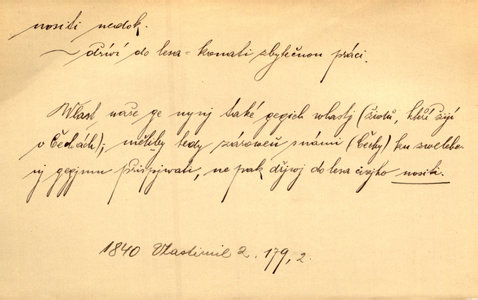 nositi nedok.
~ dříví do lesa - konati zbytečnou práci.
Wlast naše ge nynj také gegich wlastj (židů, kteří žijí
v Čechách); měliby tedy zároveň s námi (Čechy) ku zweleb-
nj gegjmu přispjwati, ne pak dřjwj do lesa cizjho nositi.
1840 Vlastimil 2. 179, 2.